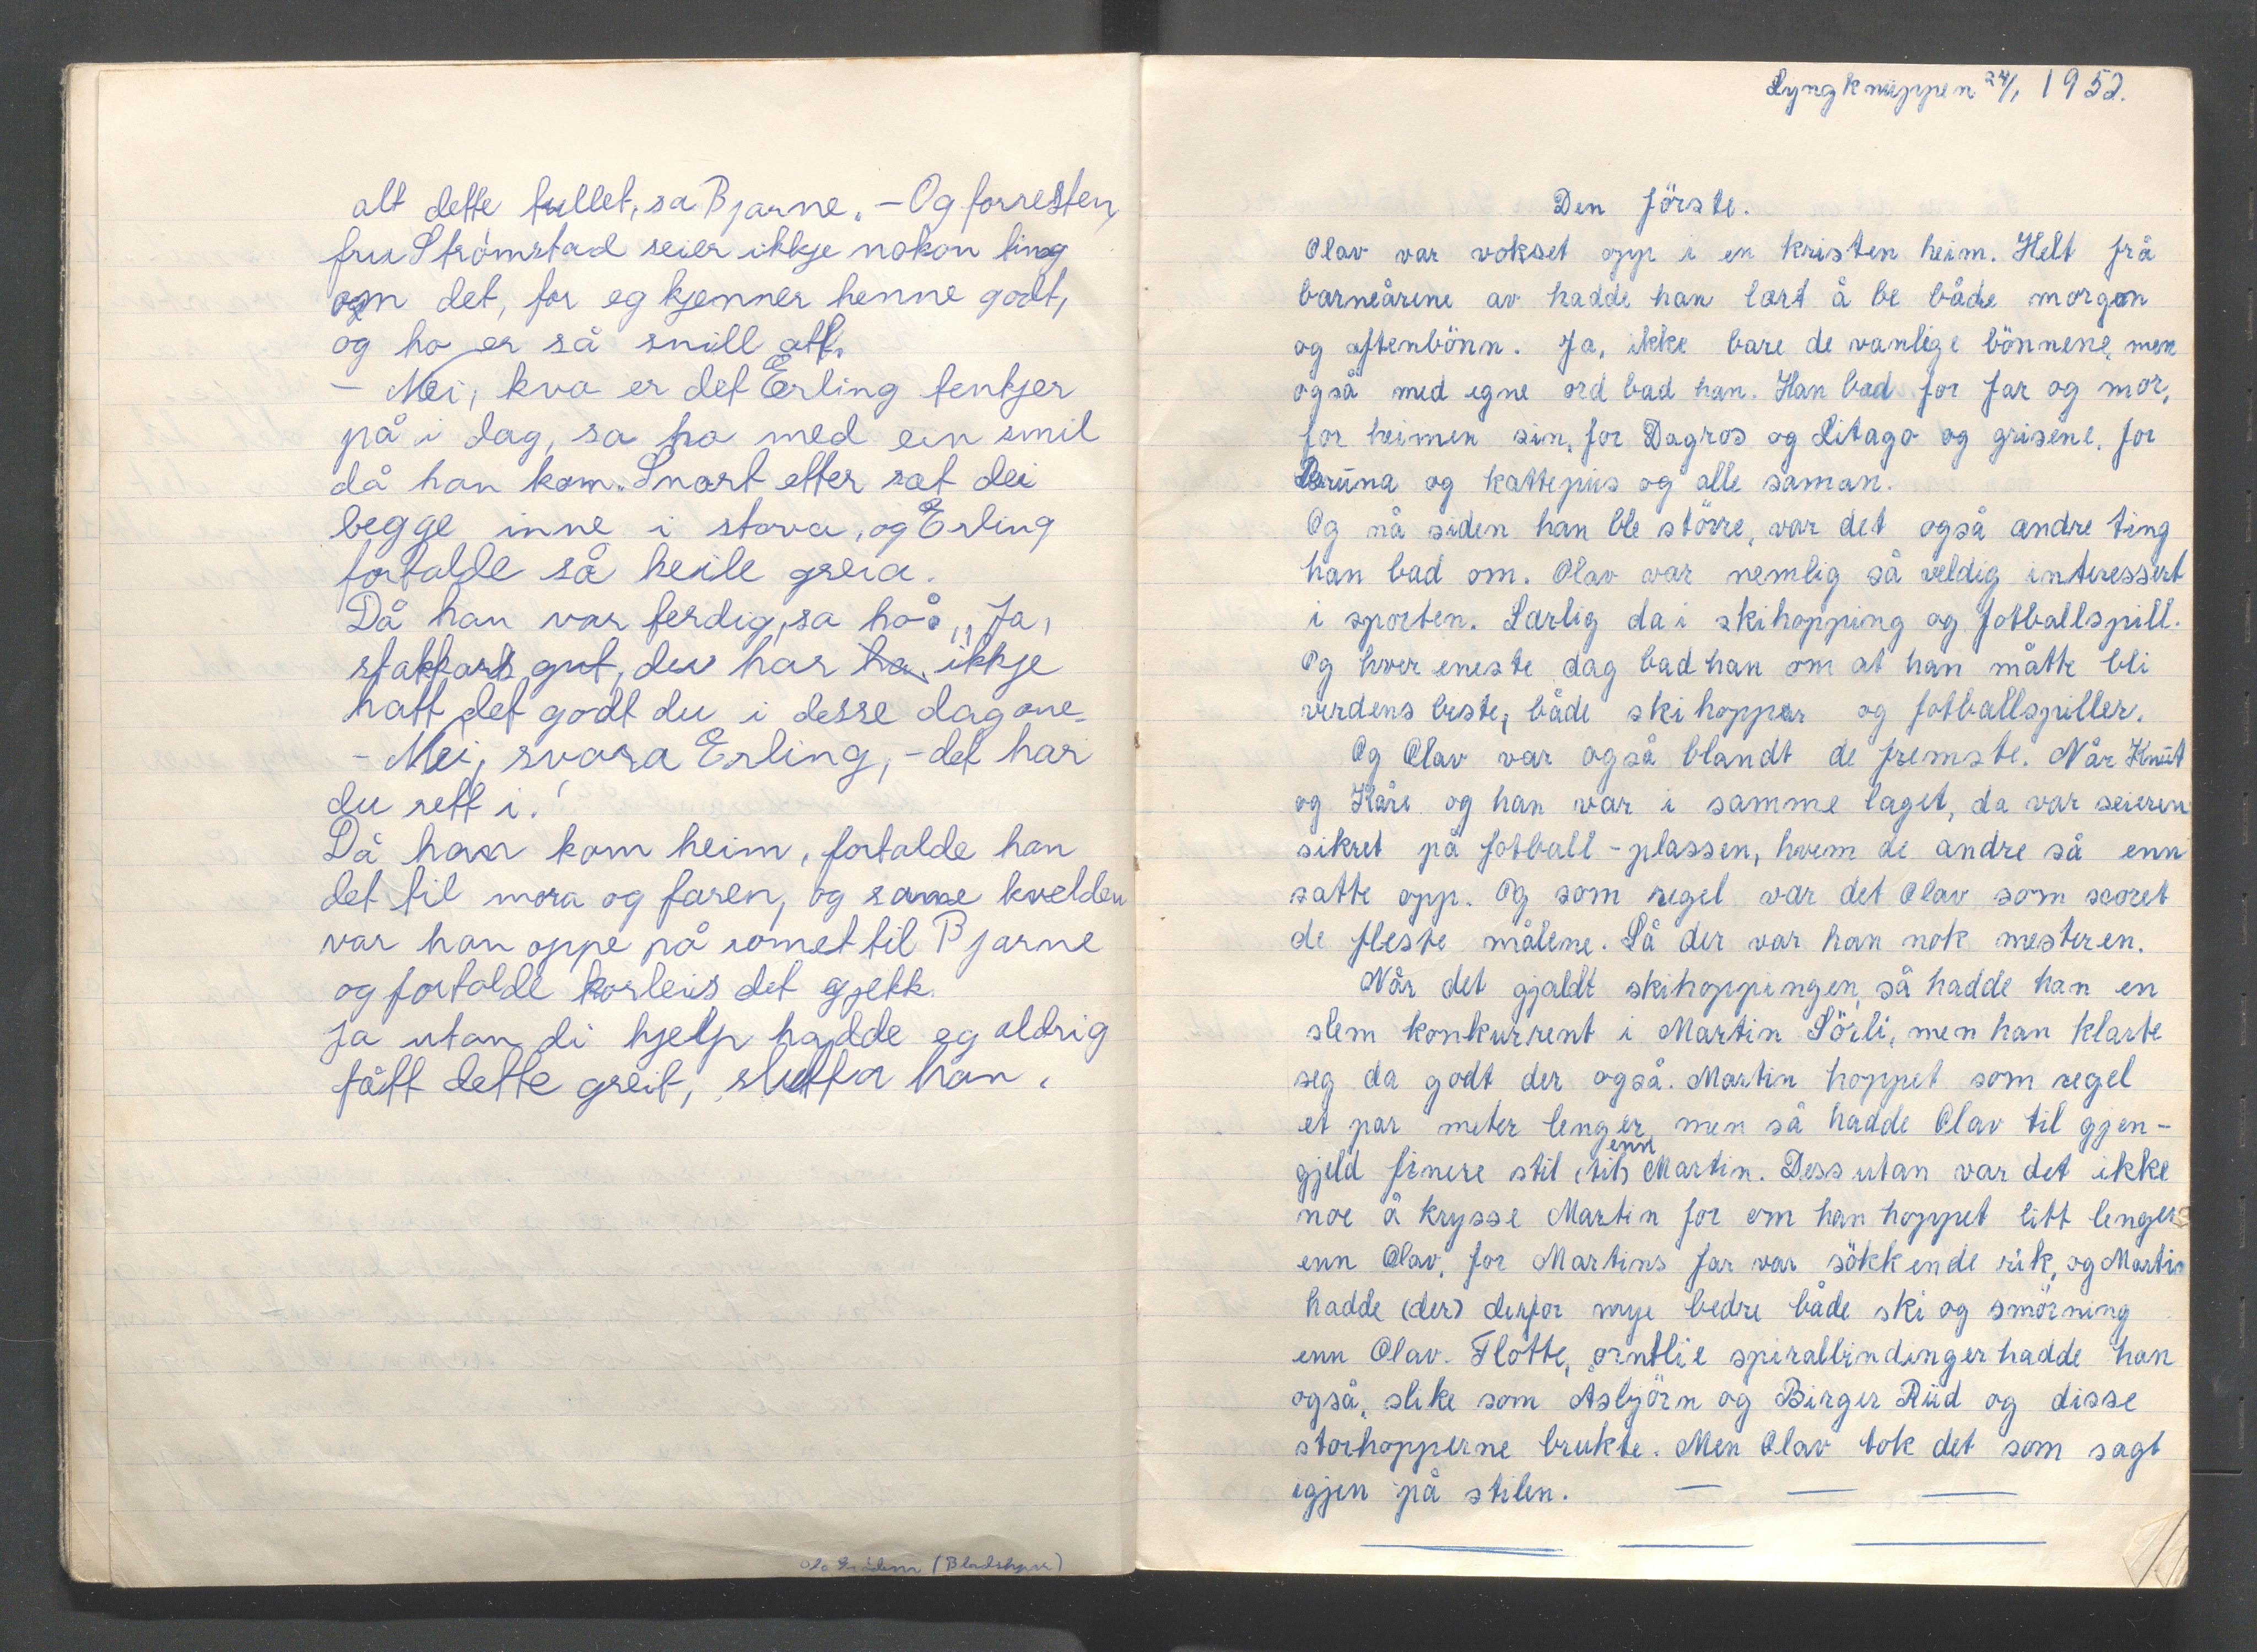 alt dette tullet, sa Bjarne. – Og forresten,
fru Strømstad seier ikkje nokon ting
om det, for eg kjenner henne godt,
og ho er så snill att.
– Nei, kva er det Erling tenkjer
på i dag, sa ho med ein smil
då han kom. Snart etter sat dei
begge inne i stova, og Erling
fortalde så heile greia.
Då han var ferdig, sa ho: ,,Ja,
stakkars gut, du har ha ikkje
hatt det godt du i desse dagone.
– Nei, svara Erling, – det har
du rett i!
Då han kom heim, fortalde han
det til mora og faren, og same kvelden
var han oppe på romet til Bjarne
og fortalde korleis det gjekk.
Ja utan di hjelp hadde eg aldrig
fått dette greit, slutta han.
(Bladstyrar)
Lyngknuppen 24/1 1952.
Den förste.
Olav var vokset opp i en kristen heim. Helt frå
barneårene av hadde han lært å be både morgen
og aftenbönn. Ja, ikke bare de vanlige bönnene, men
også med egne ord bad han. Han bad for far og mor,
for heimen sin, for Dagros og Litago og grisene, for
Bruna og kattepus og alle saman.
Og nå siden han ble större, var det også andre ting
han bad om. Olav var nemlig så veldig interessert
i sporten. Særlig da i skihopping og fotballspill.
Og hver eneste dag bad han om at han måtte bli
verdens beste, både skihopper og fotballspiller.
Og Olav var også blandt de fremste. Når Knut
og Kåre og han var i samme laget, da var seieren
sikret på fotball-plassen, hvem de andre så enn
satte opp. Og som regel var det Olav som scoret
de fleste målene. Så der var han nok mesteren.
Når det gjaldt skihoppingen, så hadde han en
slem konkurrent i Martin Sörli, men han klarte
seg da godt der også. Martin hoppet som regel
et par meter lenger, men så hadde Olav til gjen-
gjeld finere stil (til) enn Martin. Dessutan var det ikke
noe å krysse Martin for om han hoppet litt lenger
enn Olav, for Martins far var sökkende rik, og Martin
hadde (der) derfor mye bedre både ski og smörning
enn Olav. Flotte, orntlie spiralbindinger hadde han
også, slike som Asbjörn og Birger Ruud og disse
storhopperne brukte. Men Olav tok det som sagt
igjen på stilen. — — —